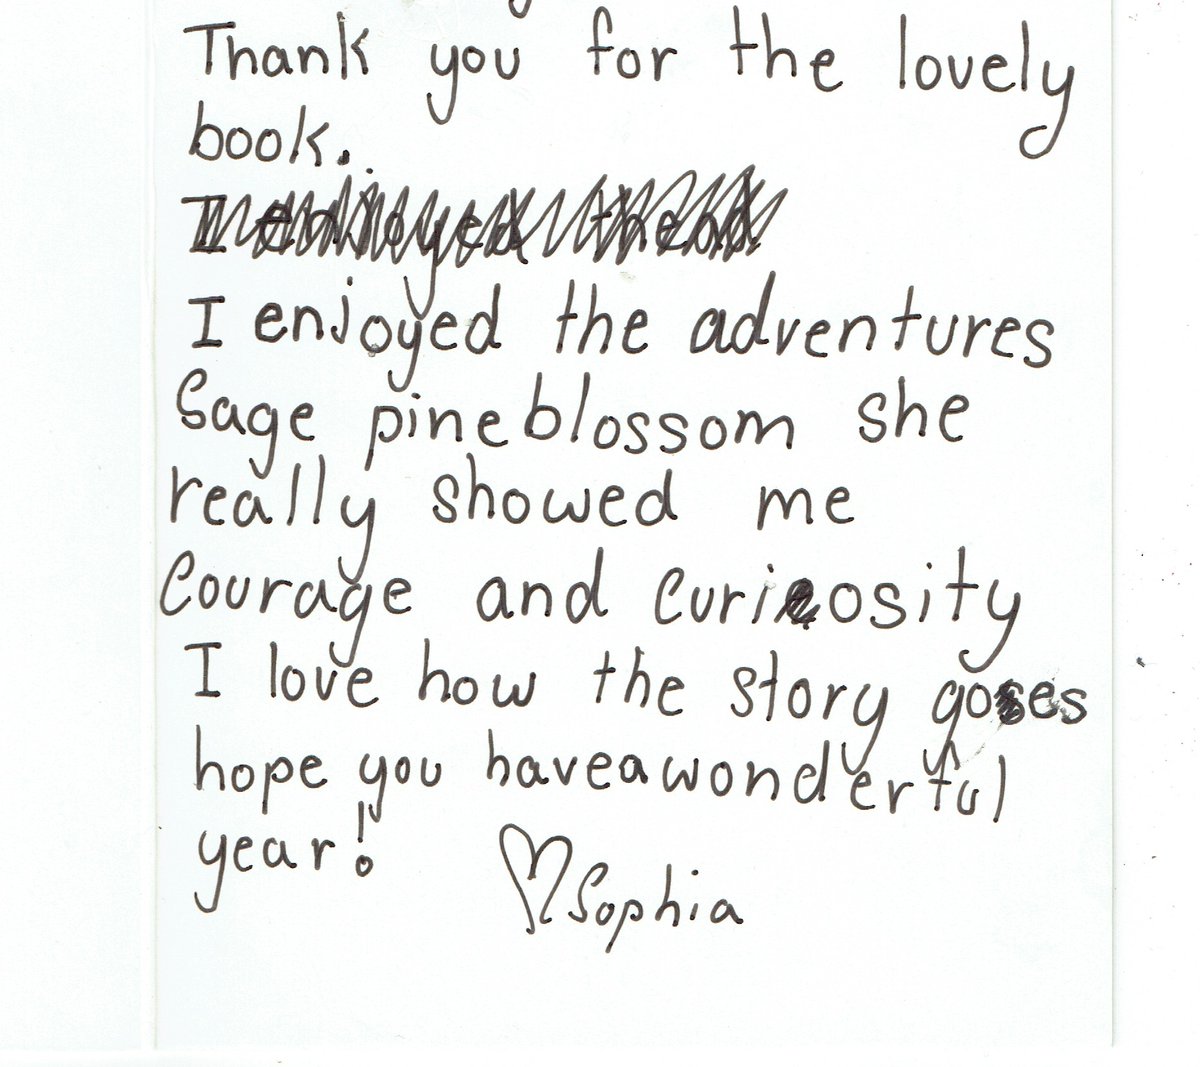 Thank you for the lovely
book.
I enjoyed the ad
I enjoyed the adventures
Sage pineblossom she
really showed me
Courage and curiosity
I love how the story goes
hope you haveawonderful
year!
♡Sophia